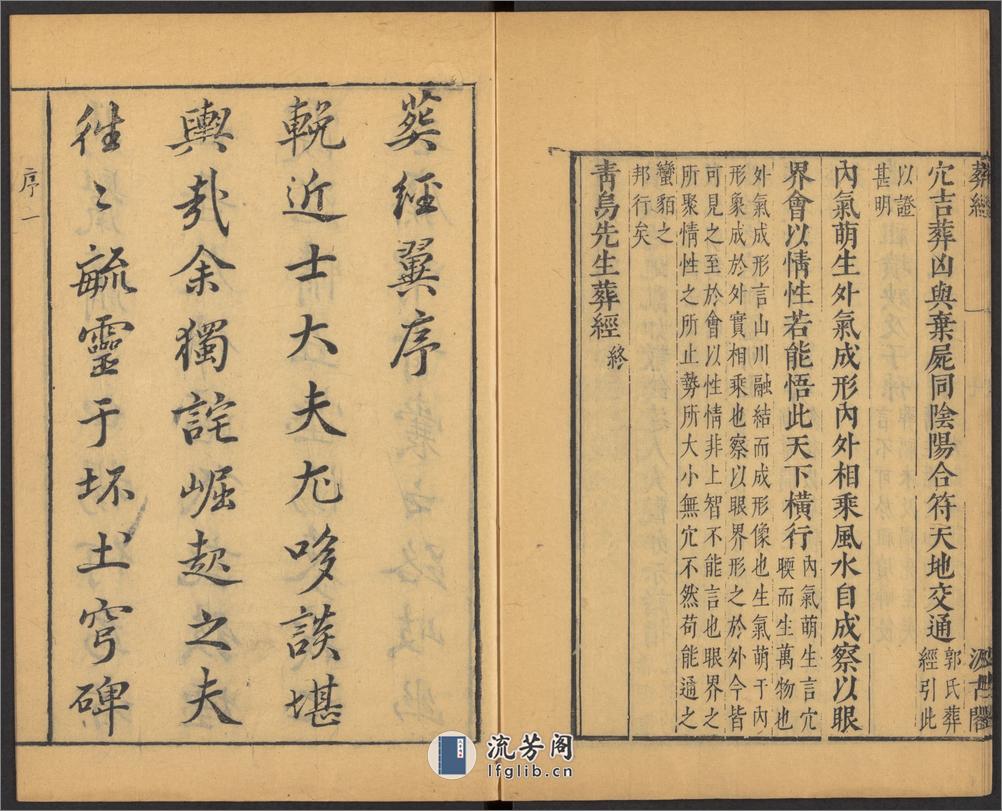 葬經
一
汲古閣
穴吉葬凶與棄屍同陰陽合符天地交通郭氏葬經引此
以證甚明
內氣萌生外氣成形內外相乘風水自成察以眼
界會以情性若能悟此天下橫行內氣萌生言穴暖而生萬物也
外氣成形言山川融結而成形像也生氣萌于內
形象成於外實相乘也察以眼界形之於外今皆
可見之至於會以性情非上智不能言也眼界之
所聚情性之所止勢所大小無穴不然苟能通之
蠻貊之邦行矣
青烏先生葬經終
葬經翼序
輓近士大夫尤哆談堪
輿哉余獨詫崛起之夫
往〻毓靈于坏土穹碑
序一
流芳阁
lfglib.cn